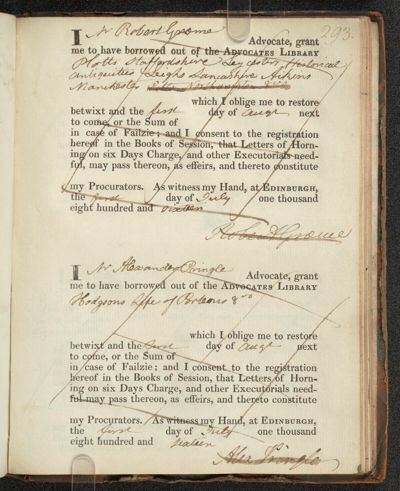 293.
I Mr Robert Græme
Advocate, grant
me to have borrowed out of the ADVOCATES LIBRARY
Plotts Staffordshire Leycesters Historical
antiquities Leighs Lancashire Aikins
Manchester
which I oblige me to restore
betwixt and the first day of Augt next
to come, or the Sum of
in case of Failzie; and I consent to the registration
hereof in the Books of Session, that Letters of Horn-
ing on six Days Charge, and other Executorials need-
ful, may pass thereon, as effeirs, and thereto constitute
my Procurators. As witness my Hand, at EDINBURGH,
the first day of July one thousand
eight hundred and sixteen
Robert Græme
I Mr Alexander Pringle
Advocate, grant
me to have borrowed out of the ADVOCATES LIBRARY
Hodgsons Life of Porteous 8vo
which I oblige me to restore
betwixt and the first day of Augt next
to come, or the Sum of
in case of Failzie; and I consent to the registration
hereof in the Books of Session, that Letters of Horn-
ing on six Days Charge, and other Executorials need-
ful may pass thereon, as effeirs, and thereto constitute
my Procurators. As witness my Hand, at EDINBURGH,
the first day of July one thousand
eight hundred and sixteen
Alex Pringle